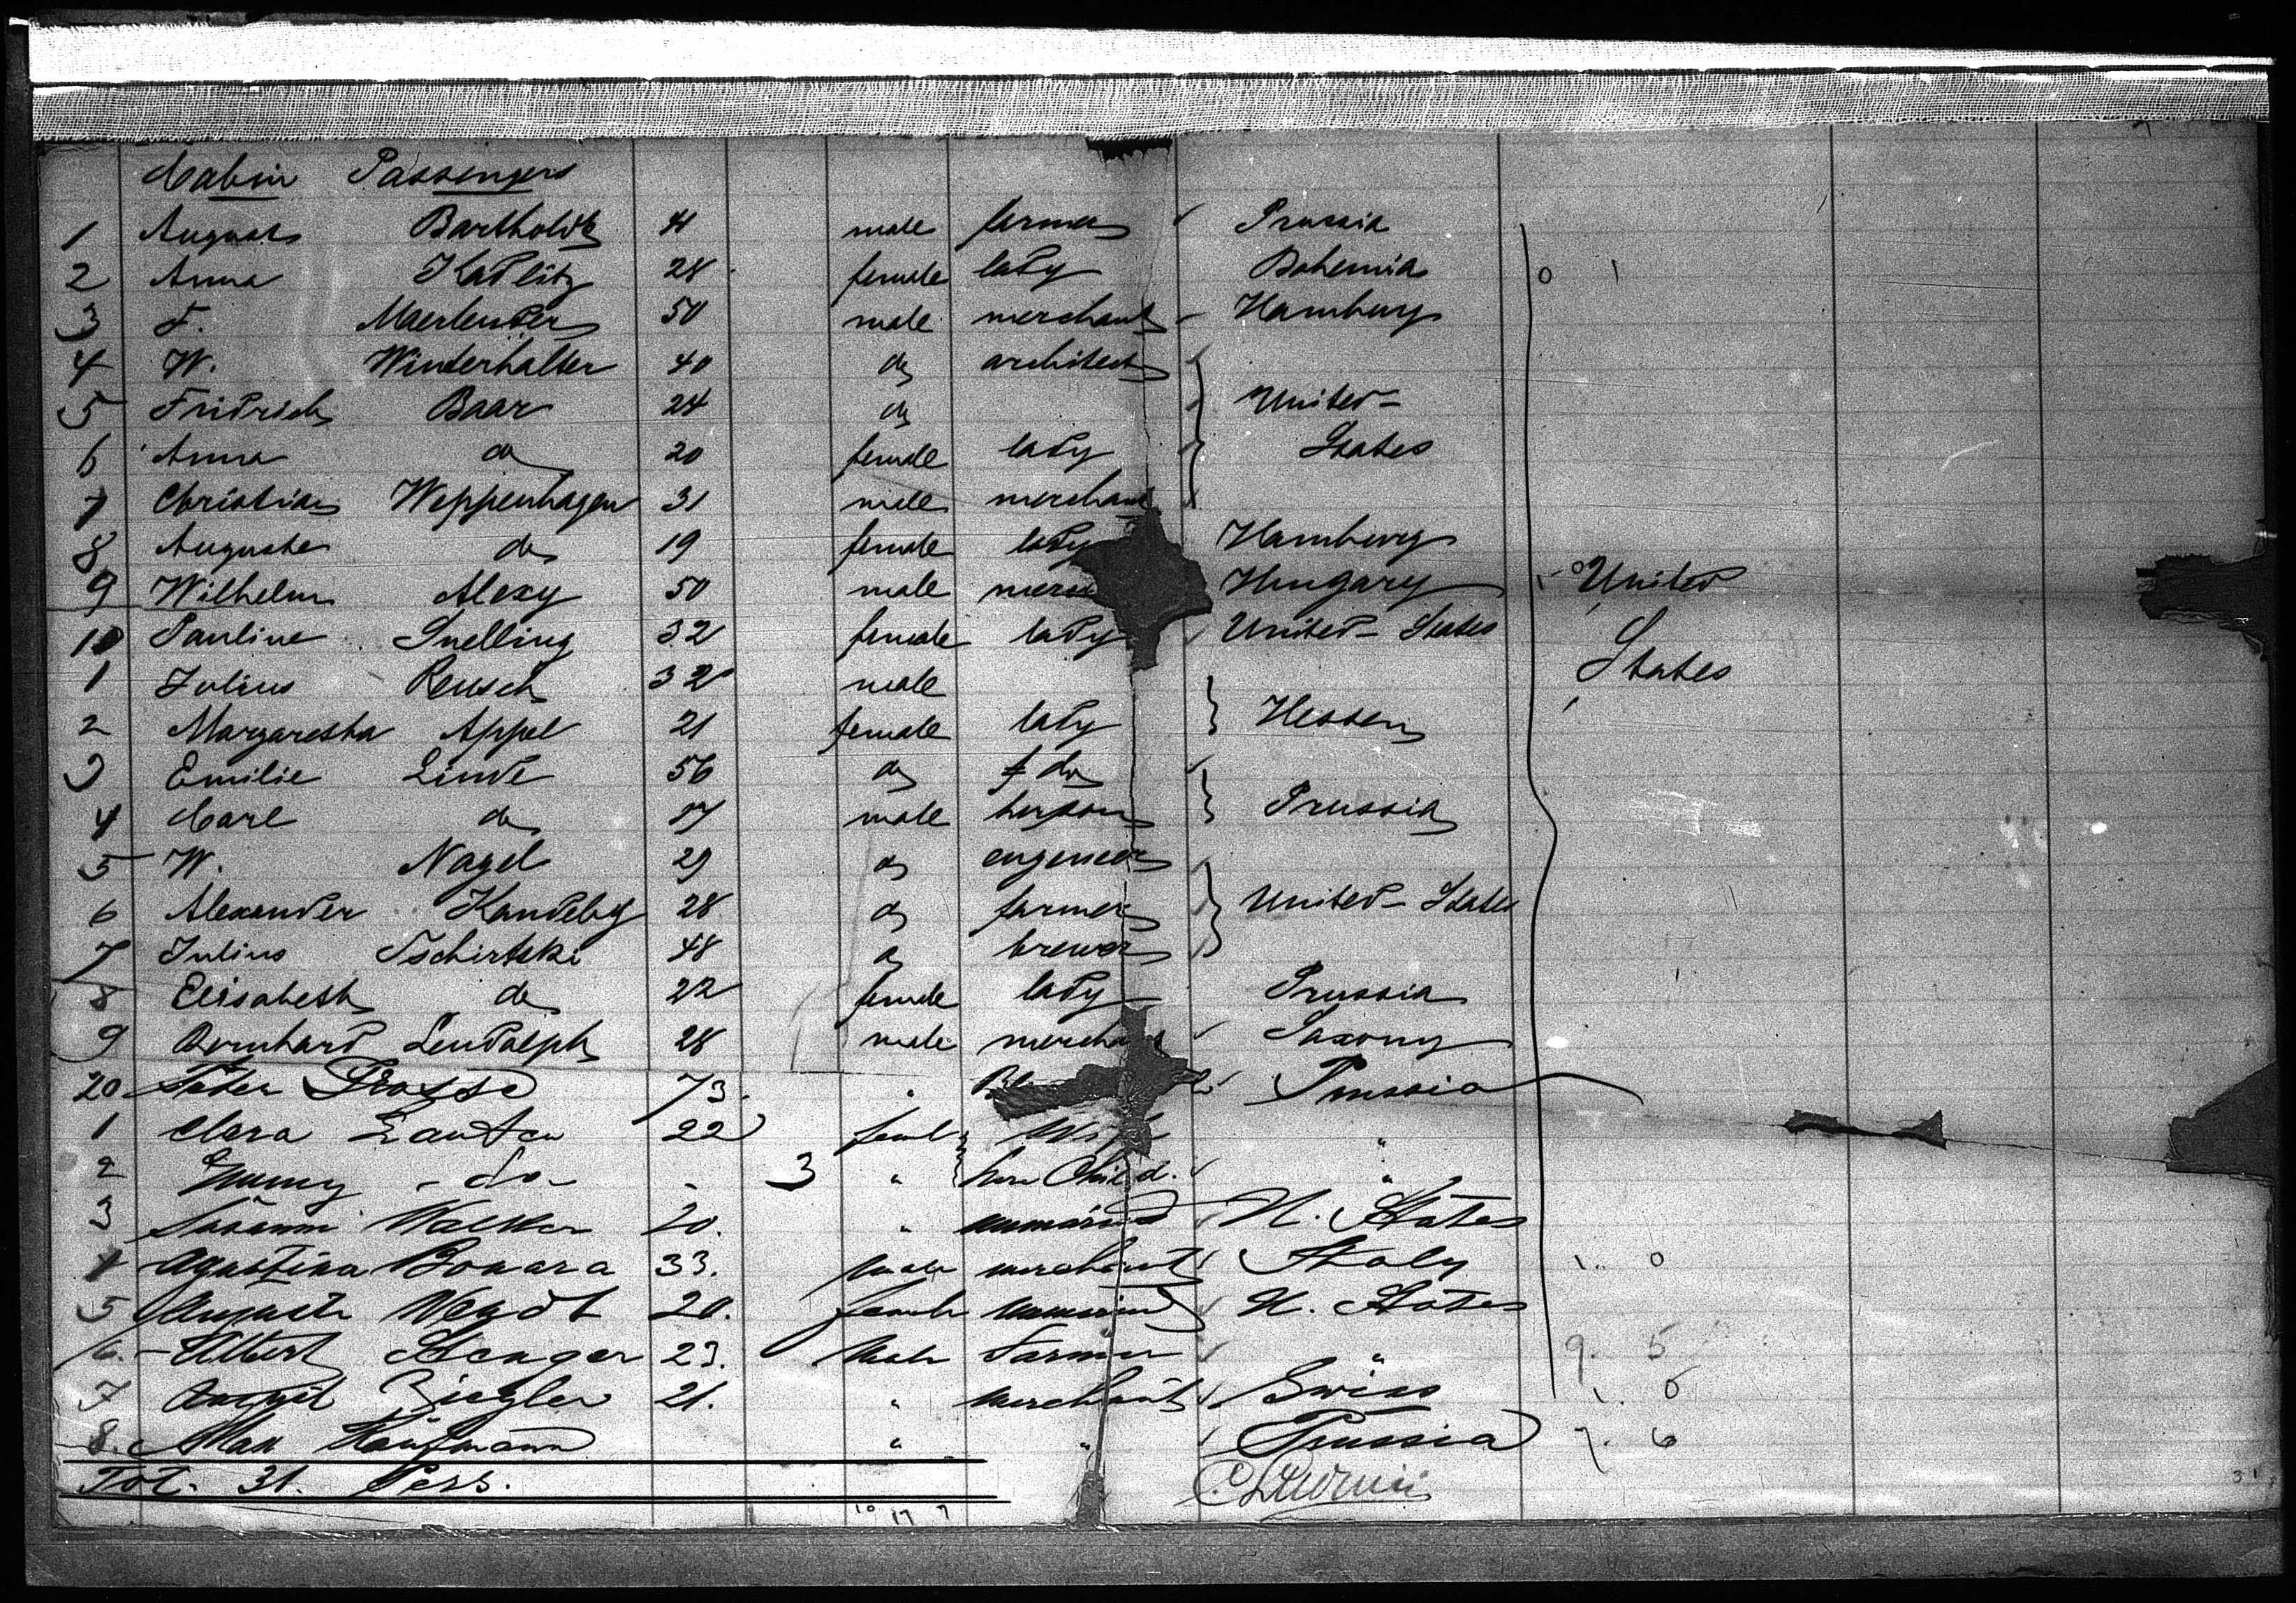 Cabin Passengers
1 August Bartholdt 41 male farmer Prussia
2 Anna Kadlitz 28 female lady Bohemia 0 1
3 F. Maerlender 50 male merchant Hamburg
4 W. Winterhalter 40 do architect
5 Fridrich Baar 24 do United-
6 Anna do 20 female lady States
7 Christian Weppenhagen 31 male merchant
8 Auguste do 19 female lady Hamburg
9 Wilhelm Alexy 50 male Hungary United
10 Pauline Snelling 32 female lady United-States States
1 Julius Reusch 32 male
2 Margaretha Appel 21 female lady Hessen
3 Emilie Linde 56 do do
4 Carl do 17 male Prussia
5 W. Nagel 29 do engeneer
6 Alexander 28 do farmer United-States
7 Julius Tschirtski 48 do brewer
8 Elisabeth do 22 female lady Prussia
9 Bernhard Lendolph 28 male merchant Saxony
20 Peter 73. " Prussia
1 Clara 22 " 
2 Emmy - do - 3 " Child. "
3 Susanne Walker 20. " unmarried U. States
4 Agostina Bonara 33. male merchant Italy 1. 0
5 Auguste 20. female unmarried U. States
6. Albert Stenger 23. male Farmer " 9. 5
7 Ziegler 21. " merchant Swiss 1. 0
8. Max Kaufmann " " Prussia 7. 6
Tot. 31. Pers.
10 17 7
31